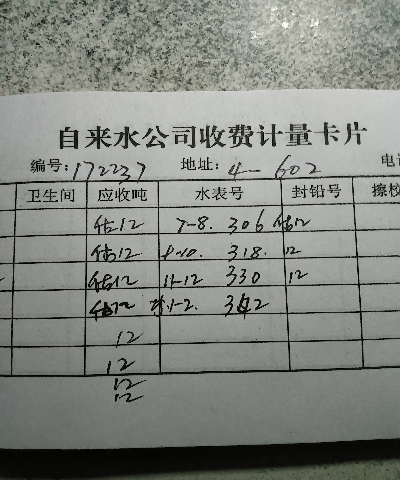 自来水公司收费计量卡片
编号:172237 地址:4-602 电
卫生间 应收吨 水表号 封铅号 擦校
估12 7-8. 306 估12
估12 9-10. 318. 12
估12 11-12 330 12
估12 1-2. 342
12
12
12
12